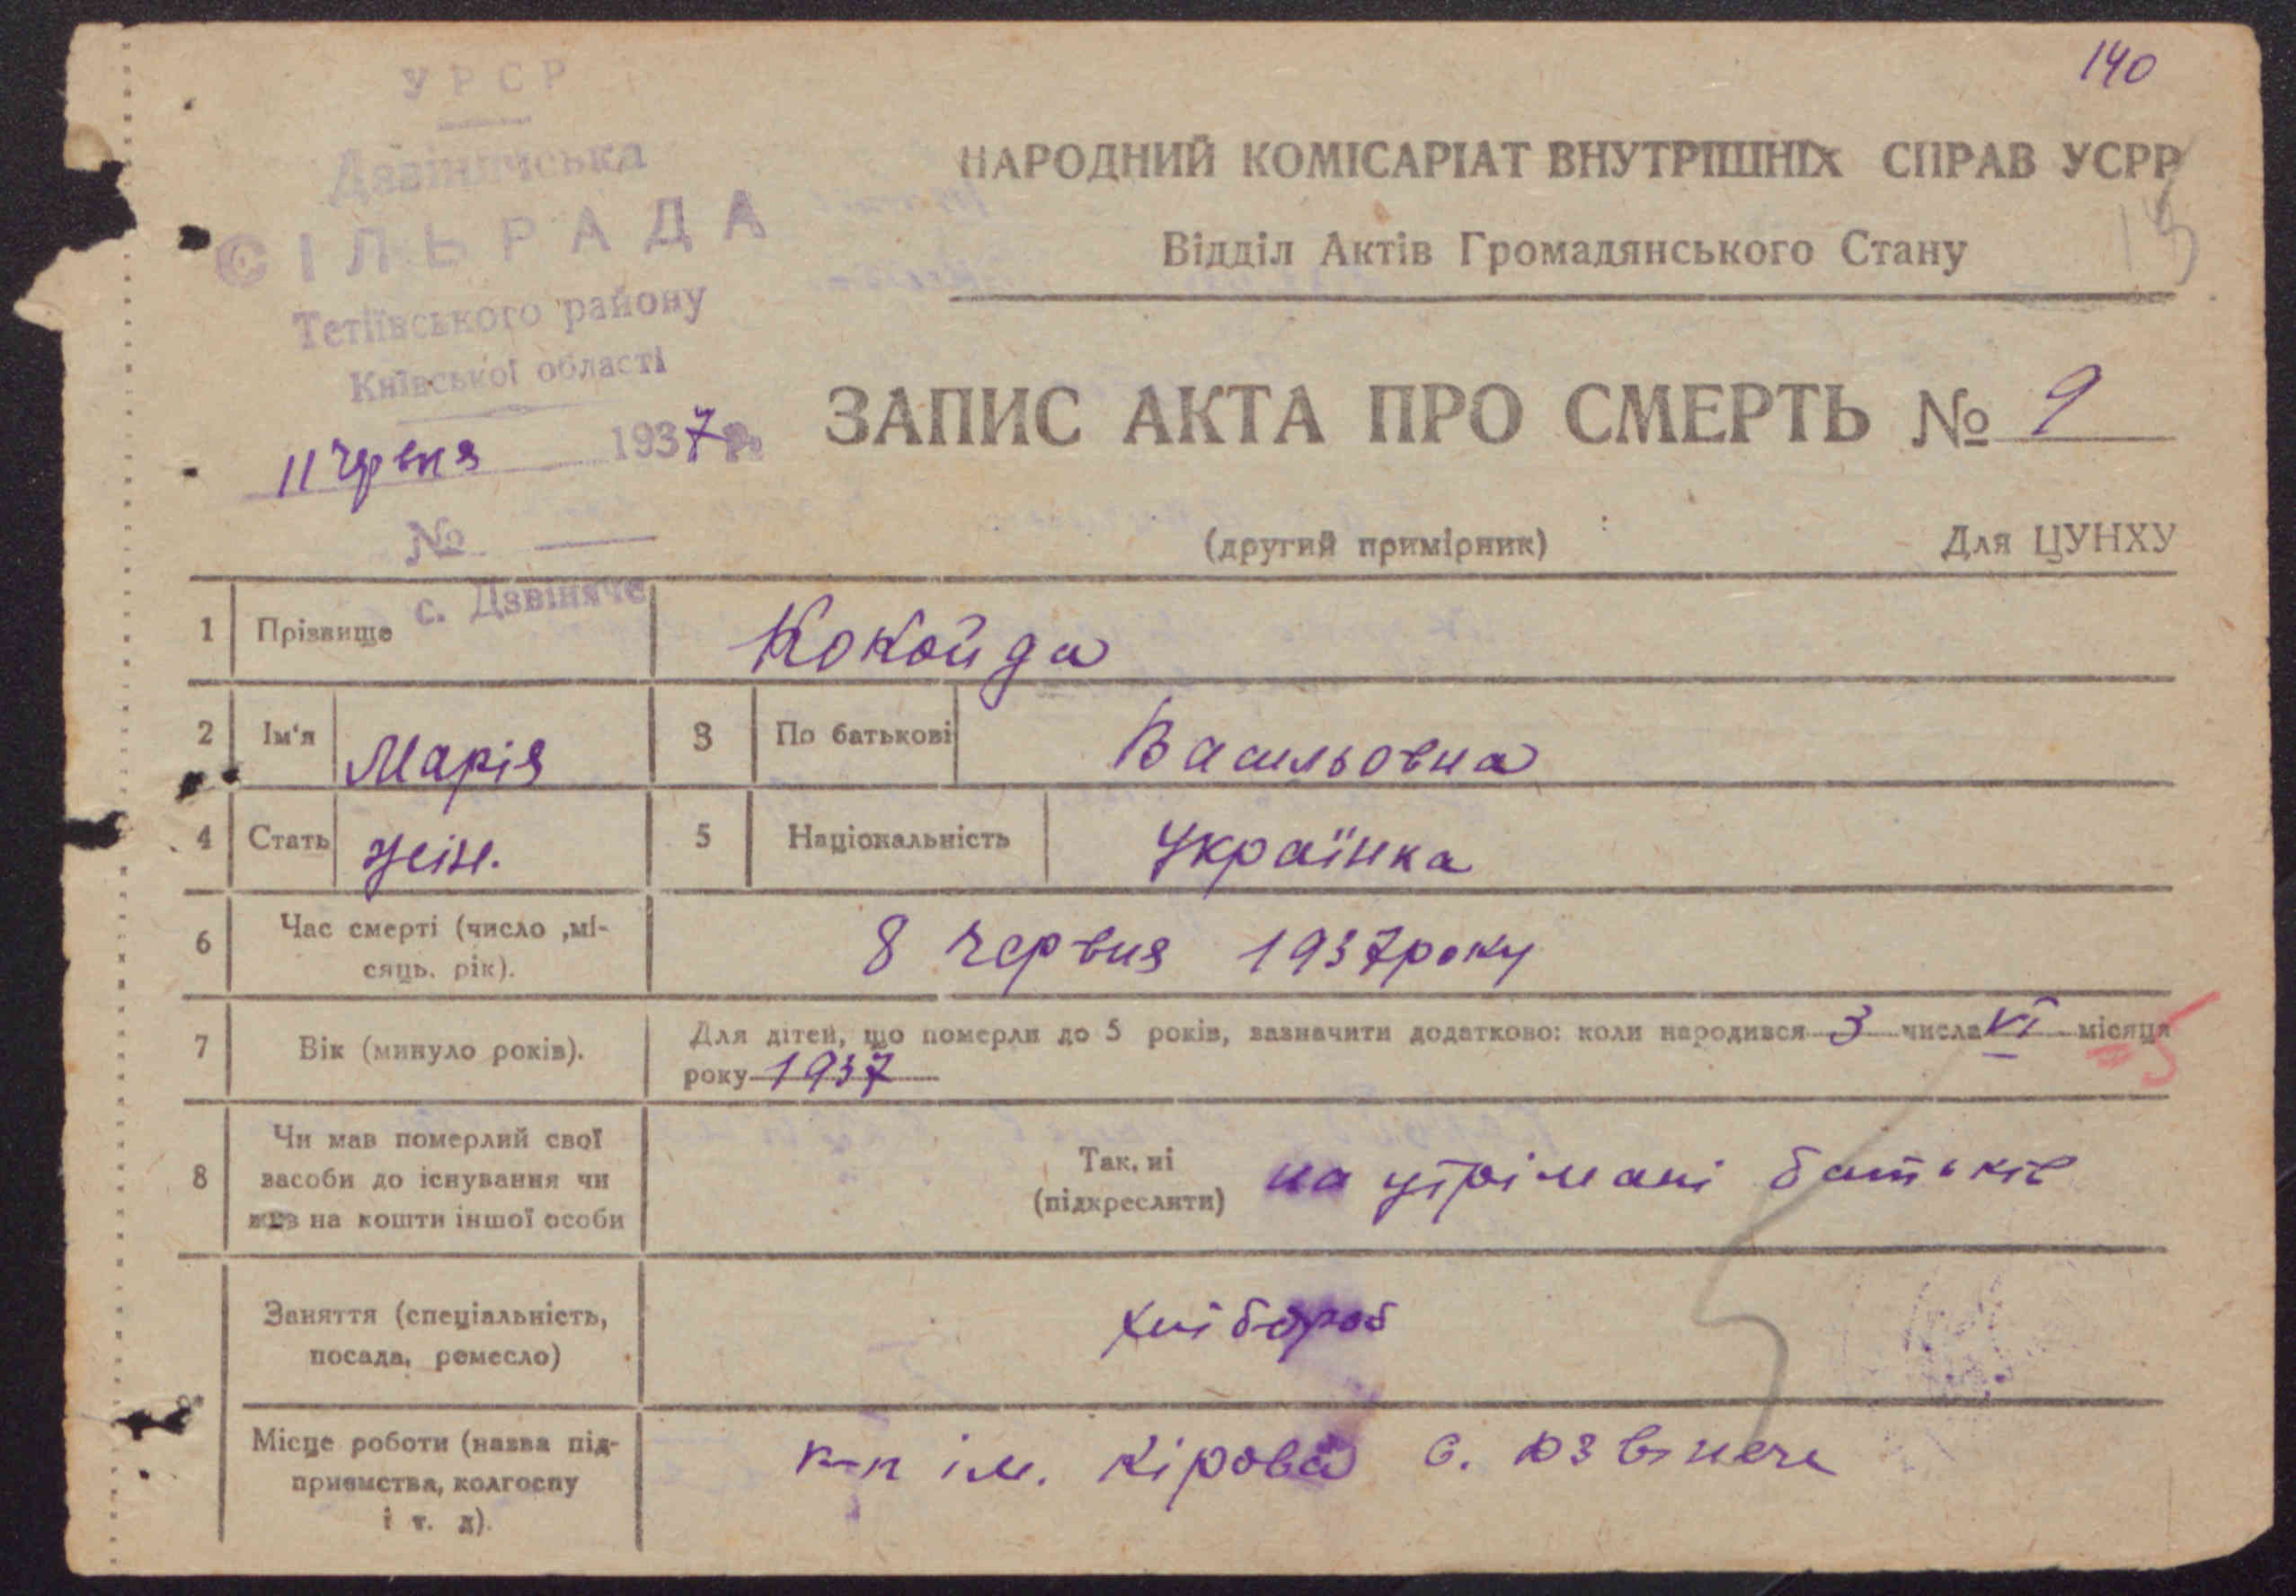 140
УРСР
Дзвінячська
СІЛЬРАДА
Тетіївського району
Київської області
11 червня 1937 р.
№ —
с. Дзвіняче
НАРОДНИЙ КОМІСАРІАТ ВНУТРІШНІХ СПРАВ УСРР
15
Відділ Актів Громадянського Стану
ЗАПИС АКТА ПРО СМЕРТЬ № 9
(другий примірник) Для ЦУНХУ
1 Прізвище Кокойда
2 Ім'я Марія 3 По батькові Васильовна
4 Стать жін. 5 Національність Українка
6 Час смерті (число ,мі-
сяць. рік).
8 червня 1937 року
7 Вік (минуло років).
Для дітей, що померли до 5 років, зазначити додатково: коли народився 3 числа VI місяця
року 1937
8 Чи мав померлий свої
засоби до існування чи
жив на кошти іншої особи
Так, ні
(підкреслити)
на утрімані батьків
Заняття (спеціальність,
посада, ремесло)
хлібороб
Місце роботи (назва під-
приємства, колгоспу
і т. д).
к-п ім. Кірова с. Дзвінече